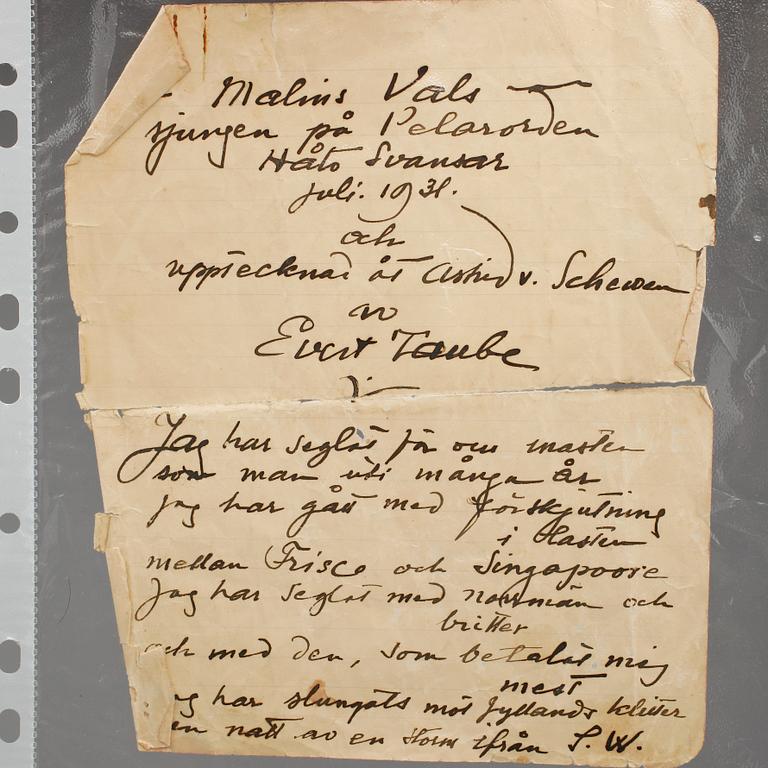 - Malins Vals
sjungen på Pelarorden
Håtö Svansar
juli. 1931.
och
upptecknad åt Astrid v. Schewen
av
Evert Taube
Jag har seglat för om masten
som man uti många år
jag har gått med förskjutning
i lasten
mellan Frisco och Singapoore
Jag har seglat med norrmän och
britter
och med den, som betalat mig
mest
jag har slungats mot Jyllands klitter
en natt av en storm ifrån S. W.